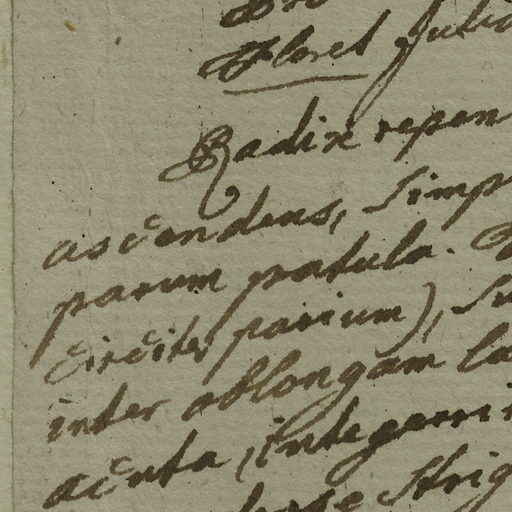 Floret Julio
Radix repen
ascendens, simp
parum patula.
circiter parium), su
inter oblongam la
acuta, integerri
strig